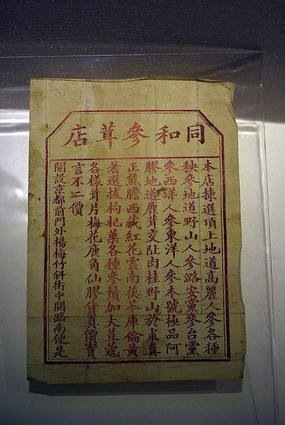 同和參茸店
本店揀選頂上地道高麗人參各種
秧參地道野山人參潞安黨參台黨
參西洋人參東洋人參本號極品阿
膠地道鹿茸交趾肉桂野山於朮真
正熊膽西藏紅花雲南茯苓庫倫黃
蓍選拔枸杞菓各種參鬚加大荳蔻
各樣茸片梅花鹿角仙膠貨真價實
言不二價
開設京都前門外楊梅竹斜街中間路南便是